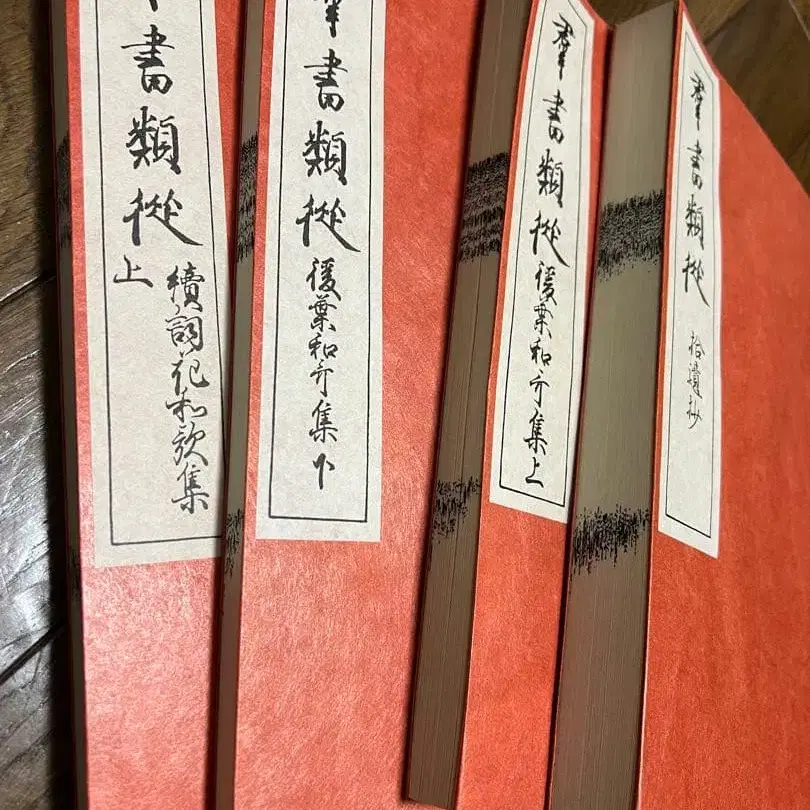 羣書類從
拾遺抄
羣書類從
後葉和哥集上
羣書類從
後葉和哥集下
羣書類從
續詞花和歌集
上